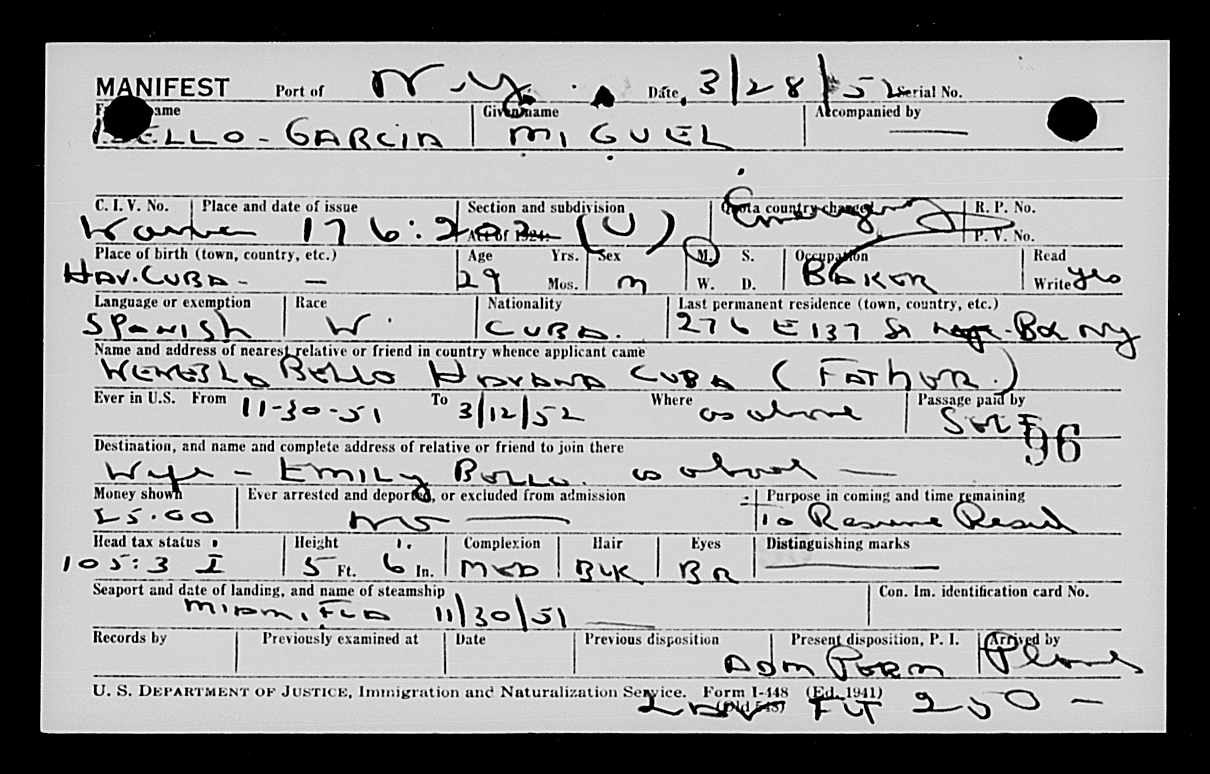 MANIFEST Port of N.Y. Date 3/28/52 Serial No.
Family name Given name Accompanied by
BELLO-GARCIA MIGUEL —
C. I. V. No. Place and date of issue Section and subdivision Quota country charged R. P. No.
176:202 (U) Emergency
Act of 1924: P. V. No.
Place of birth (town, country, etc.) Age Yrs. Sex M. S. Occupation Read
HAV. CUBA - — 29 Mos. M W. D. BAKER Write yes
Language or exemption Race Nationality Last permanent residence (town, country, etc.)
SPANISH W. CUBA. 276 E 137 St NY
Name and address of nearest relative or friend in country whence applicant came
BELLO HAVANA CUBA (FATHER.)
Ever in U.S. From To Where Passage paid by
11-30-51 3/12/52 as above SELF
96
Destination, and name and complete address of relative or friend to join there
Wife - EMILY BELLO. as above —
Money shown Ever arrested and deported, or excluded from admission Purpose in coming and time remaining
NO — To Resume Resid
Head tax status Height Complexion Hair Eyes Distinguishing marks
105:3 I 5 Ft. 6 In. MED BLK BR —
Seaport and date of landing, and name of steamship Con. Im. identification card No.
MIAMI, FLA 11/30/51 —
Records by Previously examined at Date Previous disposition Present disposition, P. I. Arrived by
ADM PERM Plane
U. S. DEPARTMENT OF JUSTICE, Immigration and Naturalization Service. Form I-448 (Ed. 1941)
(Old 548) FLT 250 -